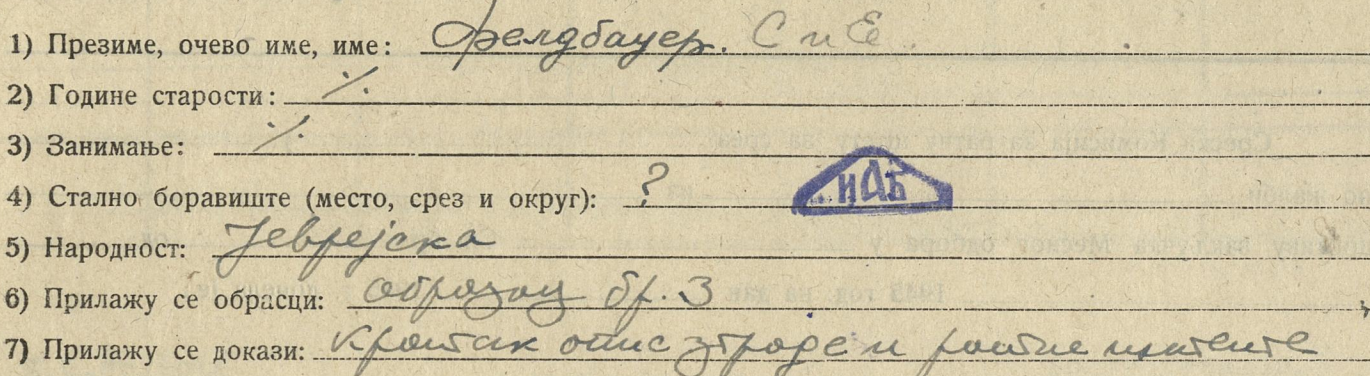 1) Презиме, очево име, име: Фелдбауер. С и Е.
2) Године старости: ·/.
3) Занимање: ·/.
4) Стално боравиште (место, срез и округ): ?
ИАБ
5) Народност: Јеврејска
6) Прилажу се обрасци: образац бр. 3
7) Прилажу се докази: Кратак опис зграде и ратне штете